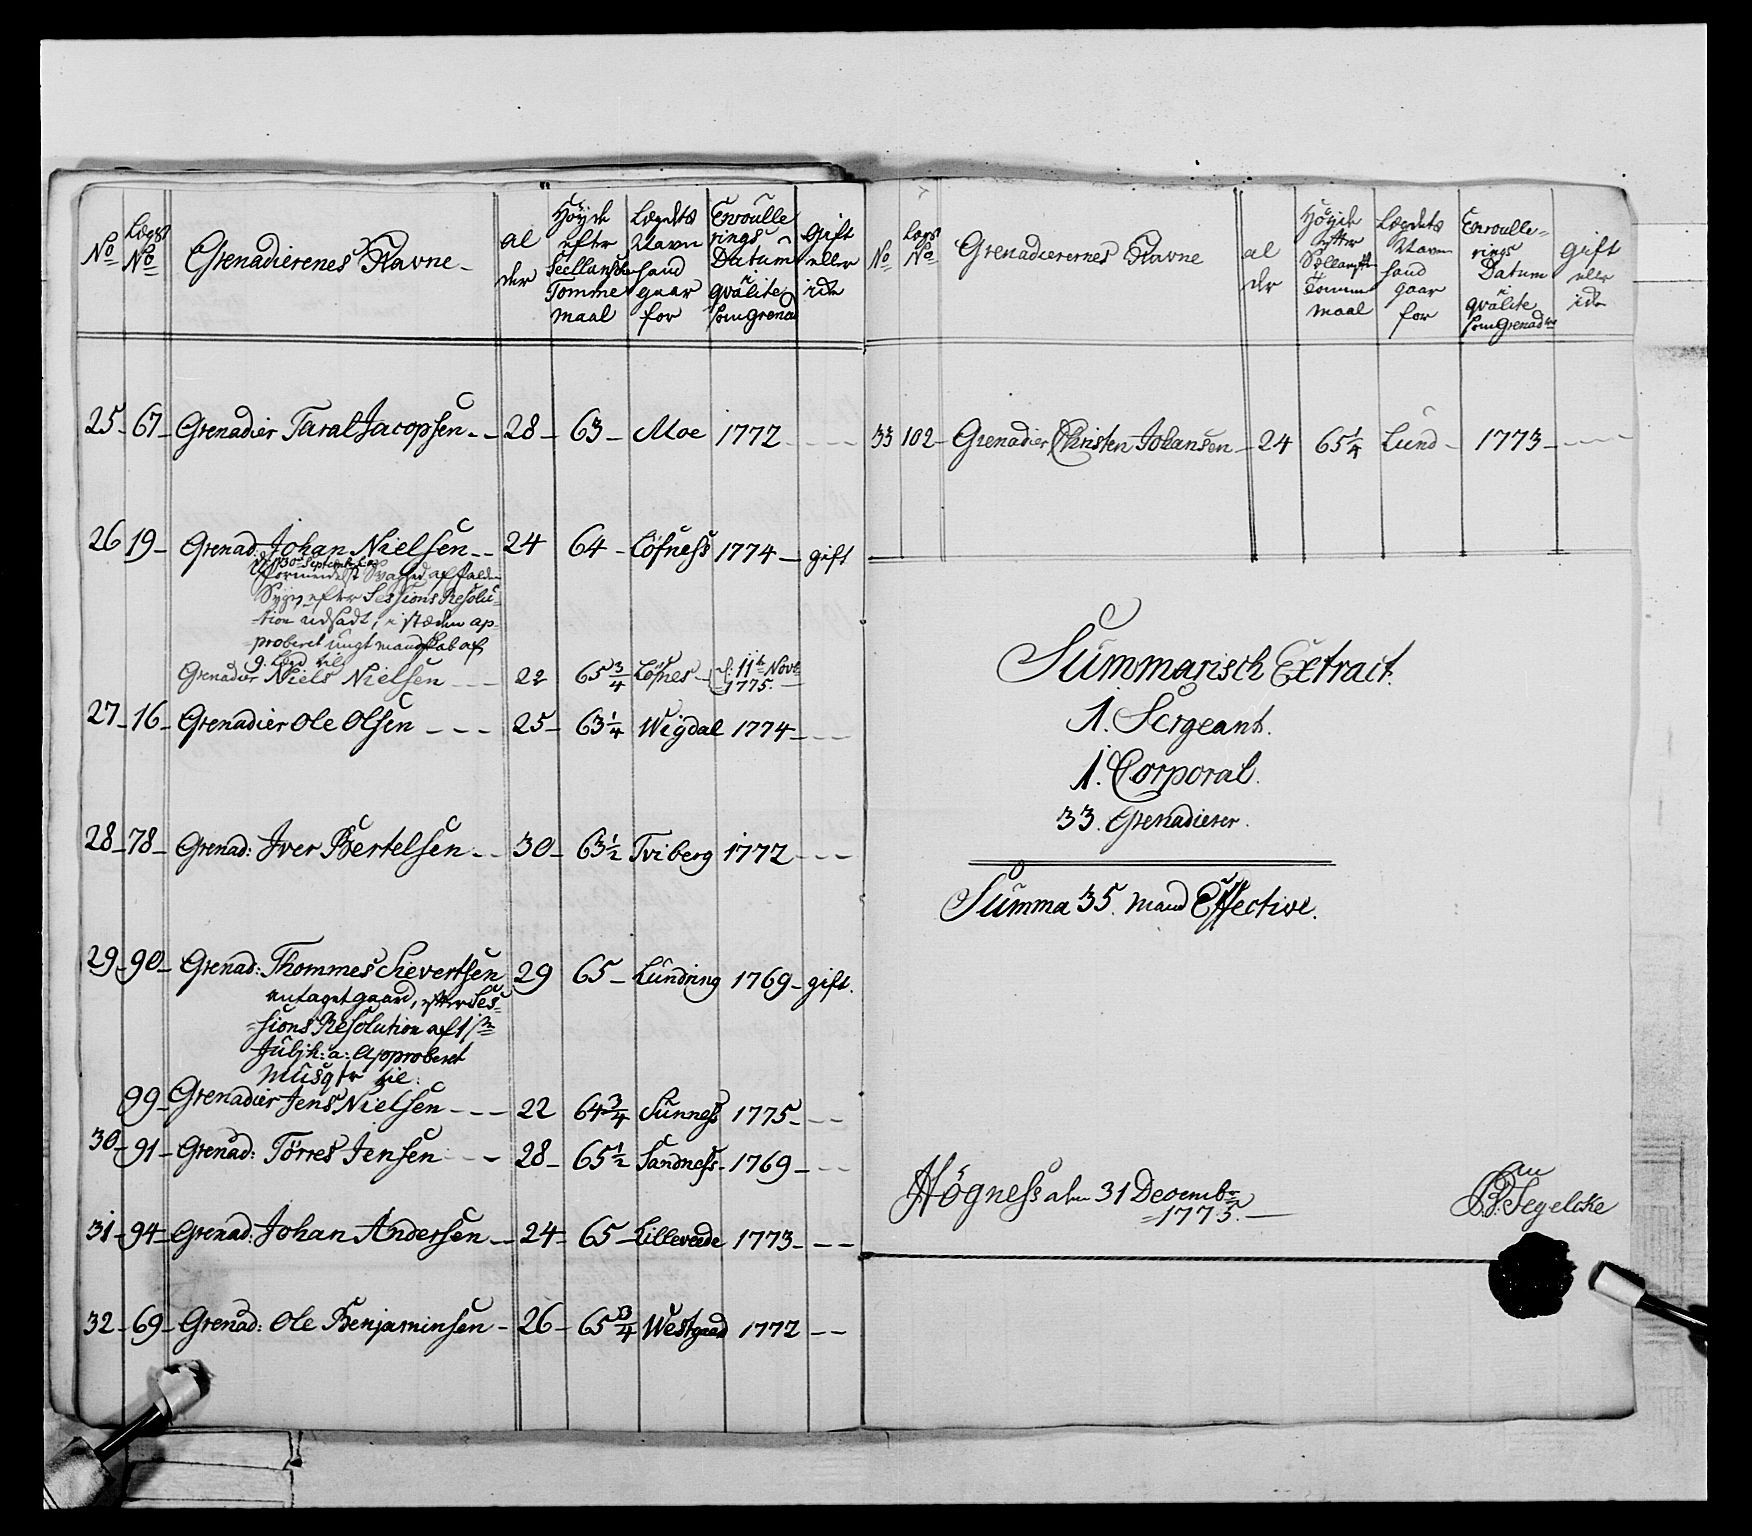 No
Lægs No
Grenadierenes Navne
al der
Höyde efter Seellandsk Tomme maal
Lægdets Navn hand gaar for
Enroulle rings Datum i qvalite som Grenad
Gift eller ide
25 67 Grenadier Taral Jacopsen 28 63 Moe 1772
26 19 Grenad: Johan Nielsen 24 64 Löfness 1774 gift
d: 30 September
formedelst Svaghed af falden
Syge, efter Sessions Resolu=
=tion udsadt, i stæden ap=
=proberet ungt mandskab af
g. Lægd til
Grenadier Niels Nielsen 22 65 3/4 Löfnes d: 11te Novbr 1775.
27 16 Grenadier Ole Olsen 25 63 1/4 Wigdal 1774
28 78 Grenad: Iver Bertelsen 30 63 1/2 Tviberg 1772
29 90 Grenad: Thommes Sievertsen 29 65 Lundring 1769 gift.
antaget gaard, efter Ses=
=sions Resolution af 1ste
Julj h: a: Approberet
Musqtr til:
99 Grenadier Jens Nielsen 22 64 3/4 Sunness 1775
30 91 Grenad: Törres Jensen 28 65 1/2 Sandness 1769
31 94 Grenad: Johan Andersen 24 65 Lilleveede 1773
32 69 Grenad: Ole Benjaminsen 26 65 3/4 Westgaad 1772
No
Lægs No
Grenadierernes Navne
al der
Höyde efter Sællandsk Tomme maal
Lægdets Navn hand gaar for
Enroulle= rings Datum i qvalite som Grenadier
gift eller ide
33 102 Grenadier Christen Johansen 24 65 1/4 Lund 1773
Summarisch Extract.
1. Sergeant.
1. Corporal.
33. Grenadierer.
Summa 35. mand Effective.
Högness den 31 Decembr
1775.
Segelcke